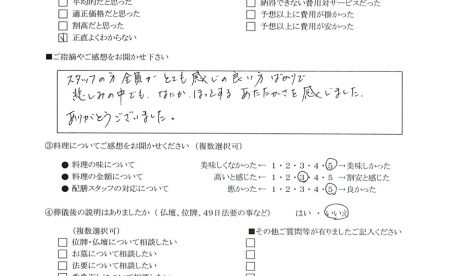 □ 平均的だと思った　□ 納得できない費用対サービスだった
□ 適正価格だと思った　□ 予想以上に費用が掛かった
□ 割高だと思った　□ 予想以上に費用が安かった
☑ 正直よくわからない
■ご指摘やご感想をお聞かせ下さい
スタッフの方 全員が とても 感じの良い方 ばかりで
悲しみの中でも、なにか、ほっとする あたたかさを 感じました。
ありがとうございました。
③料理についてご感想をお聞かせください（複数選択可）
● 料理の味について　美味しくなかった← 1・2・3・4・5→美味しかった
● 料理の金額について　高いと感じた← 1・2・3・4・5→割安と感じた
● 配膳スタッフの対応について　悪かった← 1・2・3・4・5→良かった
④葬儀後の説明はありましたか（仏壇、位牌、49日法要の事など）　はい・いいえ
（複数選択可）　■その他ご質問等が有りましたご記入ください
□ 位牌・仏壇について相談したい　□
□ お墓について相談したい　□
□ 法要について相談したい　□